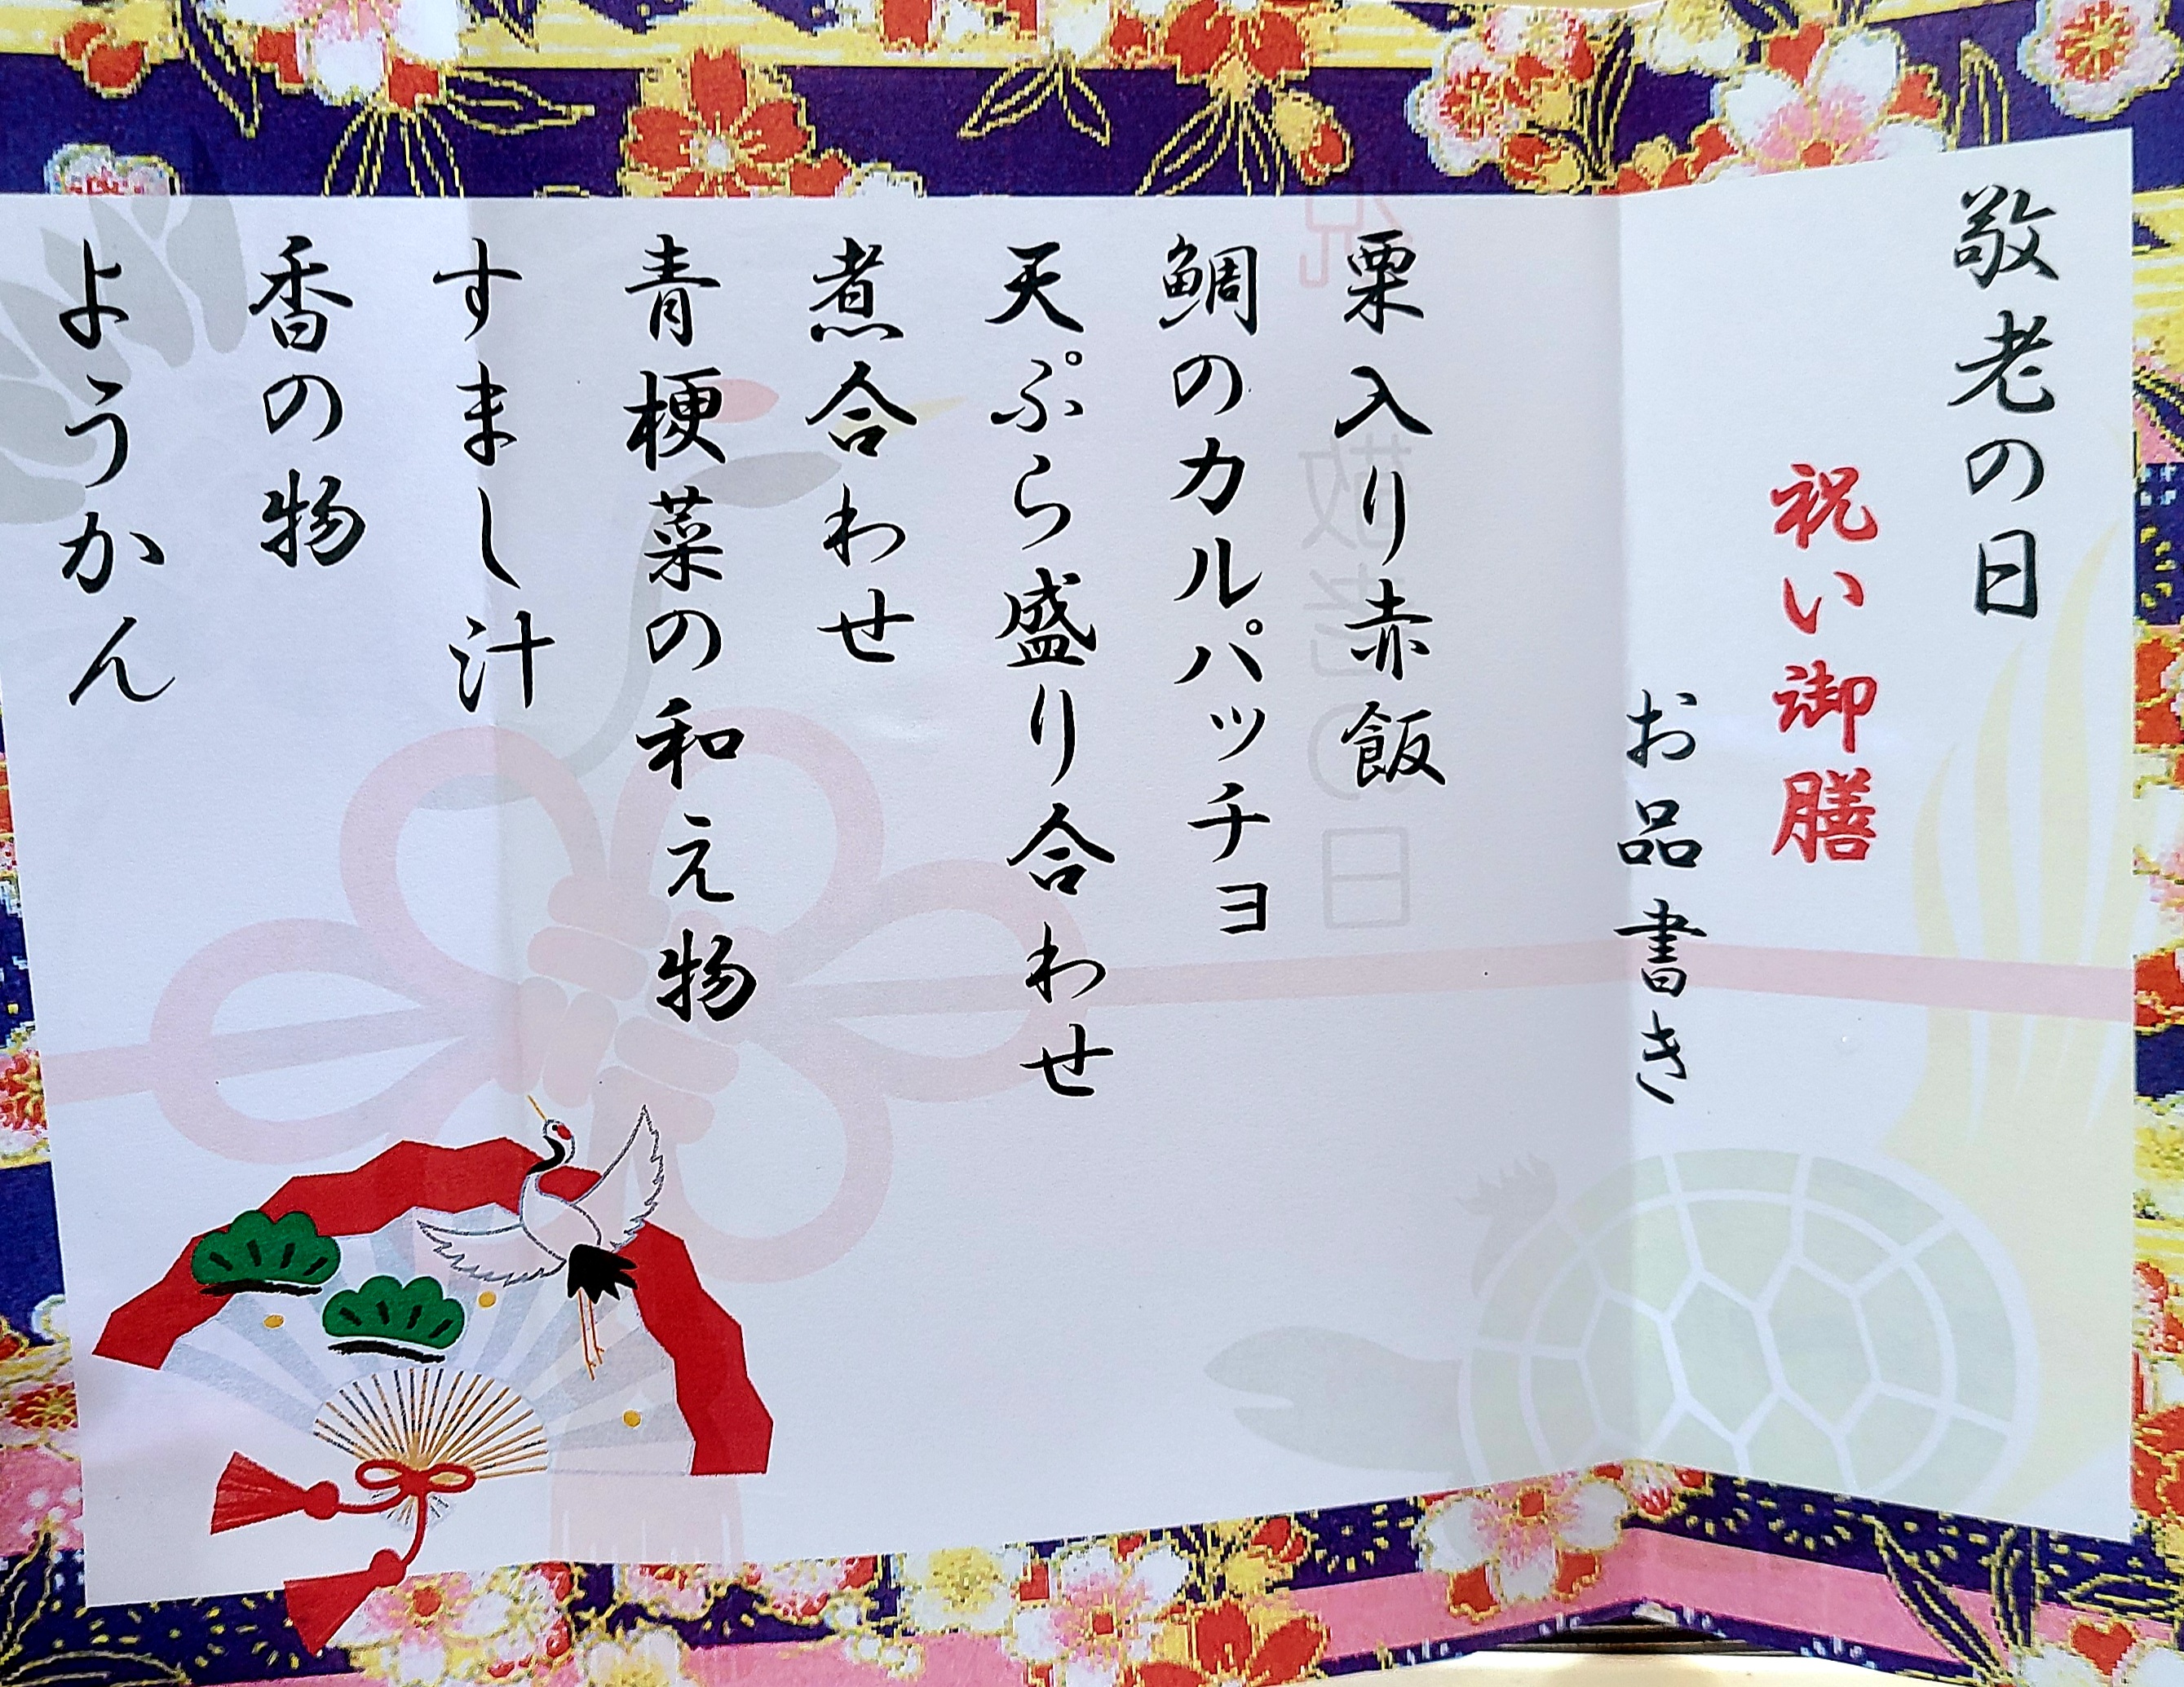 敬老の日
祝い御膳
お品書き
栗入り赤飯
鯛のカルパッチョ
天ぷら盛り合わせ
煮合わせ
青梗菜の和え物
すまし汁
香の物
ようかん
祝 敬老の日